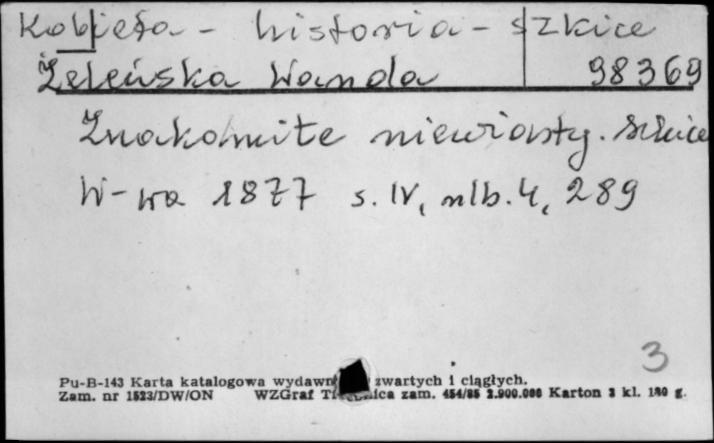 Kobieta - historia - szkice
Żeleńska Wanda 98369
Znakomite niewiasty. Szkice
W-wa 1877 s. IV, nlb. 4, 289
3
Pu-B-143 Karta katalogowa wydawn zwartych i ciągłych.
Zam. nr 1523/DW/ON WZGraf zam. 454/85 2.900.000 Karton 3 kl. 180 g.